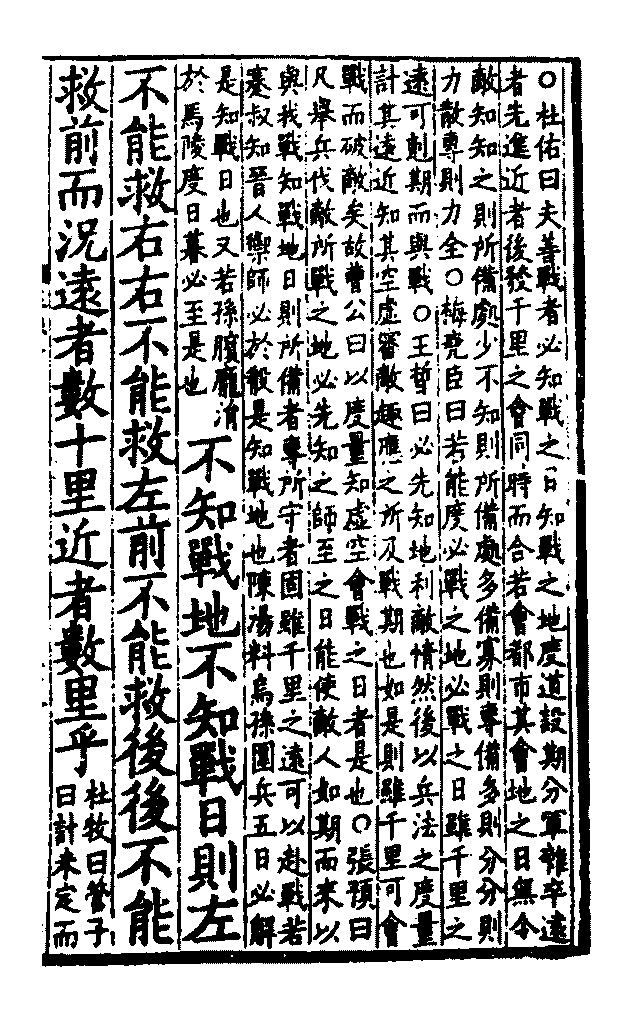 ○杜佑曰夫善戰者必知戰之日知戰之地度道設期分軍雜卒遠
者先進近者後發千里之會同時而合若會都市其會地之日無令
敵知知之則所備處少不知則所備處多備寡則專備多則分分則
力散專則力全○梅堯臣曰若能度必戰之地必戰之日雖千里之
遠可剋期而與戰○王晳曰必先知地利敵情然後以兵法之度量
計其遠近知其空虛審敵趣應之所及戰期也如是則雖千里可會
戰而破敵矣故曹公曰以度量知虛空會戰之日者是也○張預曰
凡舉兵伐敵所戰之地必先知之師至之日能使敵人如期而來以
與我戰知戰地日則所備者專所守者固雖千里之遠可以赴戰若
蹇叔知晉人禦師必於殽是知戰地也陳湯料烏孫圍兵五日必解
是知戰日也又若孫臏龐涓
於馬陵度日暮必至是也
不知戰地不知戰日則左
不能救右右不能救左前不能救後後不能
救前而況遠者數十里近者數里乎
杜牧曰管子
曰計未定而